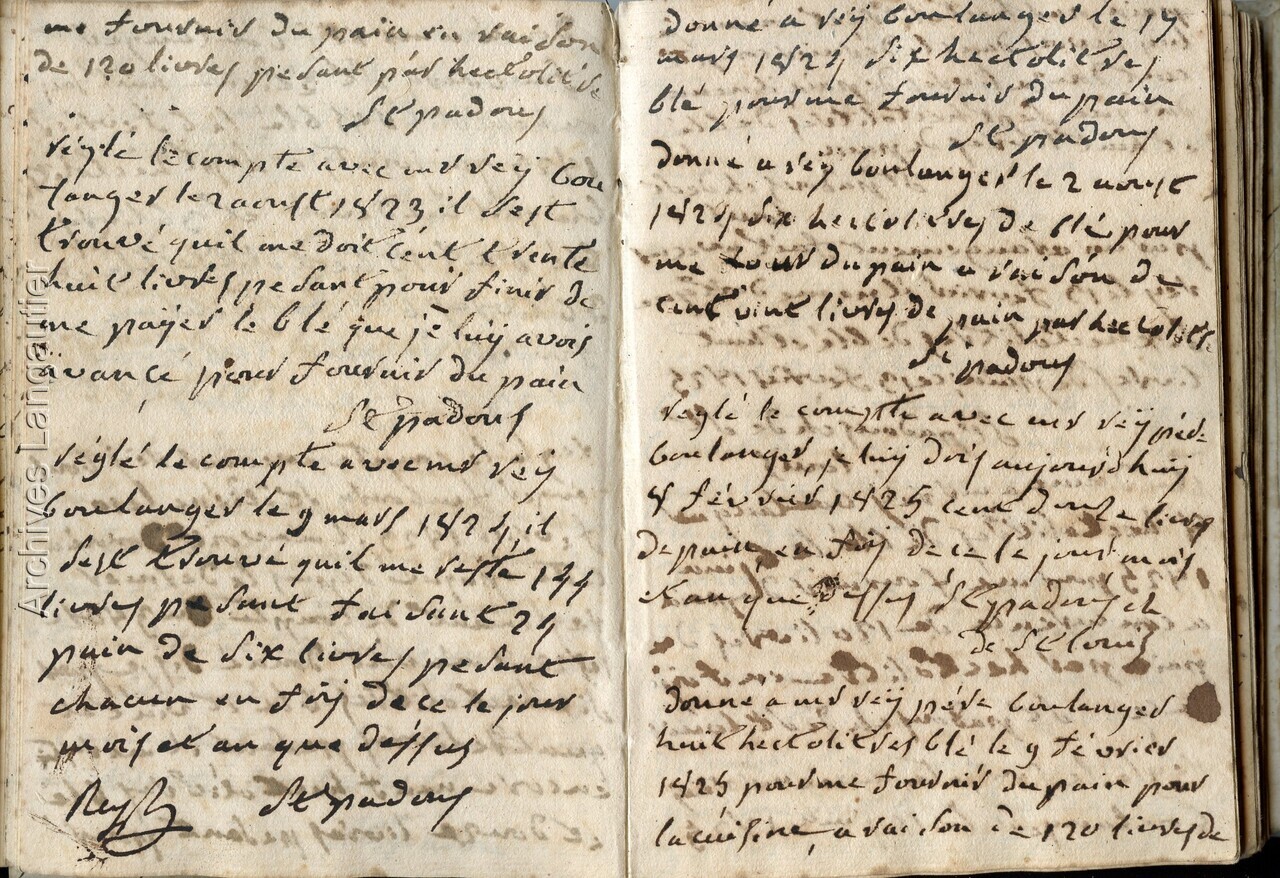 me fournir du pain en raison
de 120 livres pesant par hectolitre
St padous
réglé le compte avec mr reÿ bou
langer le 2 aoust 1823 il sest
trouvé quil me doit cent trente
huit livres pesant pour finir de
me paÿer le blé que je luÿ avois
avancé pour fournir du pain
St padous
réglé le compte avec mr reÿ
boulanger le 9 mars 1824, il
sest trouvé quil me reste 144
livres pesant faisant 24
pain de six livres pesant
chacun en foÿ de ce le jour
mois et an que dessus
Rey St padous
donné a reÿ boulanger le 19
mars 1824 six hectolitres
blé pour me fournir du pain
St padous
donné a reÿ boulanger le 2 aoust
1824 six hectolitres de blé pour
me du pain a raison de
cent vint livres de pain par hectolitre
St padous
réglé le compte avec mr reÿ père
boulanger, je luÿ dois aujourdhuÿ
8 février 1825 cent douze livres
de pain en foÿ de ce le jour mois
et an que dessus St padous ch
de St louis
donné a mr reÿ père boulanger
huit hectolitres blé le 9 février
1825 pour me fournir du pain pour
la cuisine, a raison de 120 livres de
Archives Langautier